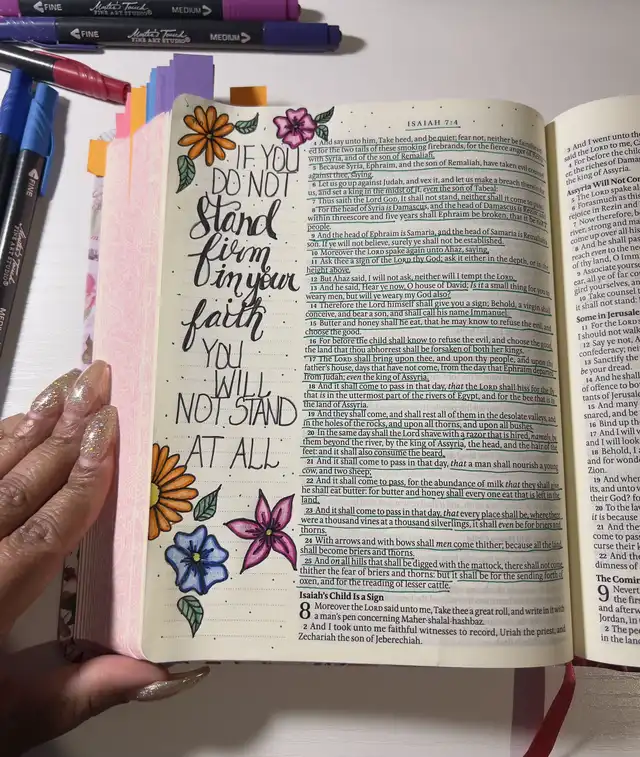 FINE Master's Touch FINE ART STUDIO MEDIUM
FINE Master's Touch FINE ART STUDIO MEDIUM
FINE
FINE
Master's Touch
FINE ART STUDIO
MEDIUM
IF YOU
DO NOT
Stand
firm
in your
faith
YOU
WILL
NOT STAND
AT ALL
ISAIAH 7:4
4 And say unto him, Take heed, and be quiet; fear not, neither be
ed for the two tails of these smoking firebrands, for the fierce anger of
with Syria, and of the son of Remaliah.
5 Because Syria, Ephraim, and the son of Remaliah, have taken evil
against thee, saying,
6 Let us go up against Judah, and vex it, and let us make a breach
us, and set a king in the midst of it, even the son of Tabeal:
7 Thus saith the Lord GOD, It shall not stand, neither shall it come
8 For the head of Syria is Damascus, and the head of Damascus is
within threescore and five years shall Ephraim be broken, that it be
people.
9 And the head of Ephraim is Samaria, and the head of Samaria is Remaliah's
son. If ye will not believe, surely ye shall not be established.
10 Moreover the LORD spake again unto Ahaz, saying,
11 Ask thee a sign of the LORD thy God; ask it either in the depth, or in the
height above.
12 But Ahaz said, I will not ask, neither will I tempt the LORD.
13 And he said, Hear ye now, O house of David; Is it a small thing for you to
weary men, but will ye weary my God also?
14 Therefore the Lord himself shall give you a sign; Behold, a virgin shall
conceive, and bear a son, and shall call his name Immanuel.
15 Butter and honey shall he eat, that he may know to refuse the evil, and
choose the good.
16 For before the child shall know to refuse the evil, and choose the good,
the land that thou abhorrest shall be forsaken of both her kings.
17 The LORD shall bring upon thee, and upon thy people, and upon thy
father's house, days that have not come, from the day that Ephraim departed
from Judah; even the king of Assyria.
18 And it shall come to pass in that day, that the LORD shall hiss for the fly
that is in the uttermost part of the rivers of Egypt, and for the bee that is in
the land of Assyria.
19 And they shall come, and shall rest all of them in the desolate valleys, and
in the holes of the rocks, and upon all thorns, and upon all bushes.
20 In the same day shall the Lord shave with a razor that is hired, namely, by
them beyond the river, by the king of Assyria, the head, and the hair of the
feet: and it shall also consume the beard.
21 And it shall come to pass in that day, that a man shall nourish a young
cow, and two sheep;
22 And it shall come to pass, for the abundance of milk that they shall give
he shall eat butter: for butter and honey shall every one eat that is left in the
land.
23 And it shall come to pass in that day, that every place shall be, where there
were a thousand vines at a thousand silverlings, it shall even be for briers and
thorns.
24 With arrows and with bows shall men come thither; because all the land
shall become briers and thorns.
25 And on all hills that shall be digged with the mattock, there shall not come
thither the fear of briers and thorns: but it shall be for the sending forth of
oxen, and for the treading of lesser cattle.
Isaiah's Child Is a Sign
8 Moreover the LORD said unto me, Take thee a great roll, and write in it with
a man's pen concerning Maher-shalal-hashbaz.
2 And I took unto me faithful witnesses to record, Uriah the priest, and
Zechariah the son of Jeberechiah.
3 And I went unto the
said the LORD to me, C
4 For before the child
er, the riches of Damas
the king of Assyria.
Assyria Will Not Con
5 The LORD spake
6 Forasmuch as thi
rejoice in Rezin and
7 Now therefore, b
river, strong and ma
come up over all his
8 And he shall
reach even to the ne
of thy land, O Imm
9 Associate your
ear, all ye of far co
gird yourselves, and
10 Take counsel t
it shall not stand:
Some in Jerusalem
11 For the LORD
I should not walk
12 Say ye not, A
confederacy; nei
13 Sanctify the
be your dread.
14 And he shall
of offence to bot
tants of Jerusalem
15 And many
snared, and be
16 Bind up the
17 And I will
I will look
18 Behold, I a
and for wonder
Zion.
19 And when
its, and unto
their God? for
20 To the law
it is because
21 And they
come to pass
curse their
22 And they
dimness of
The Coming
9 Nevert
the firs
and afterw
Jordan, in
2 The peo
in the land